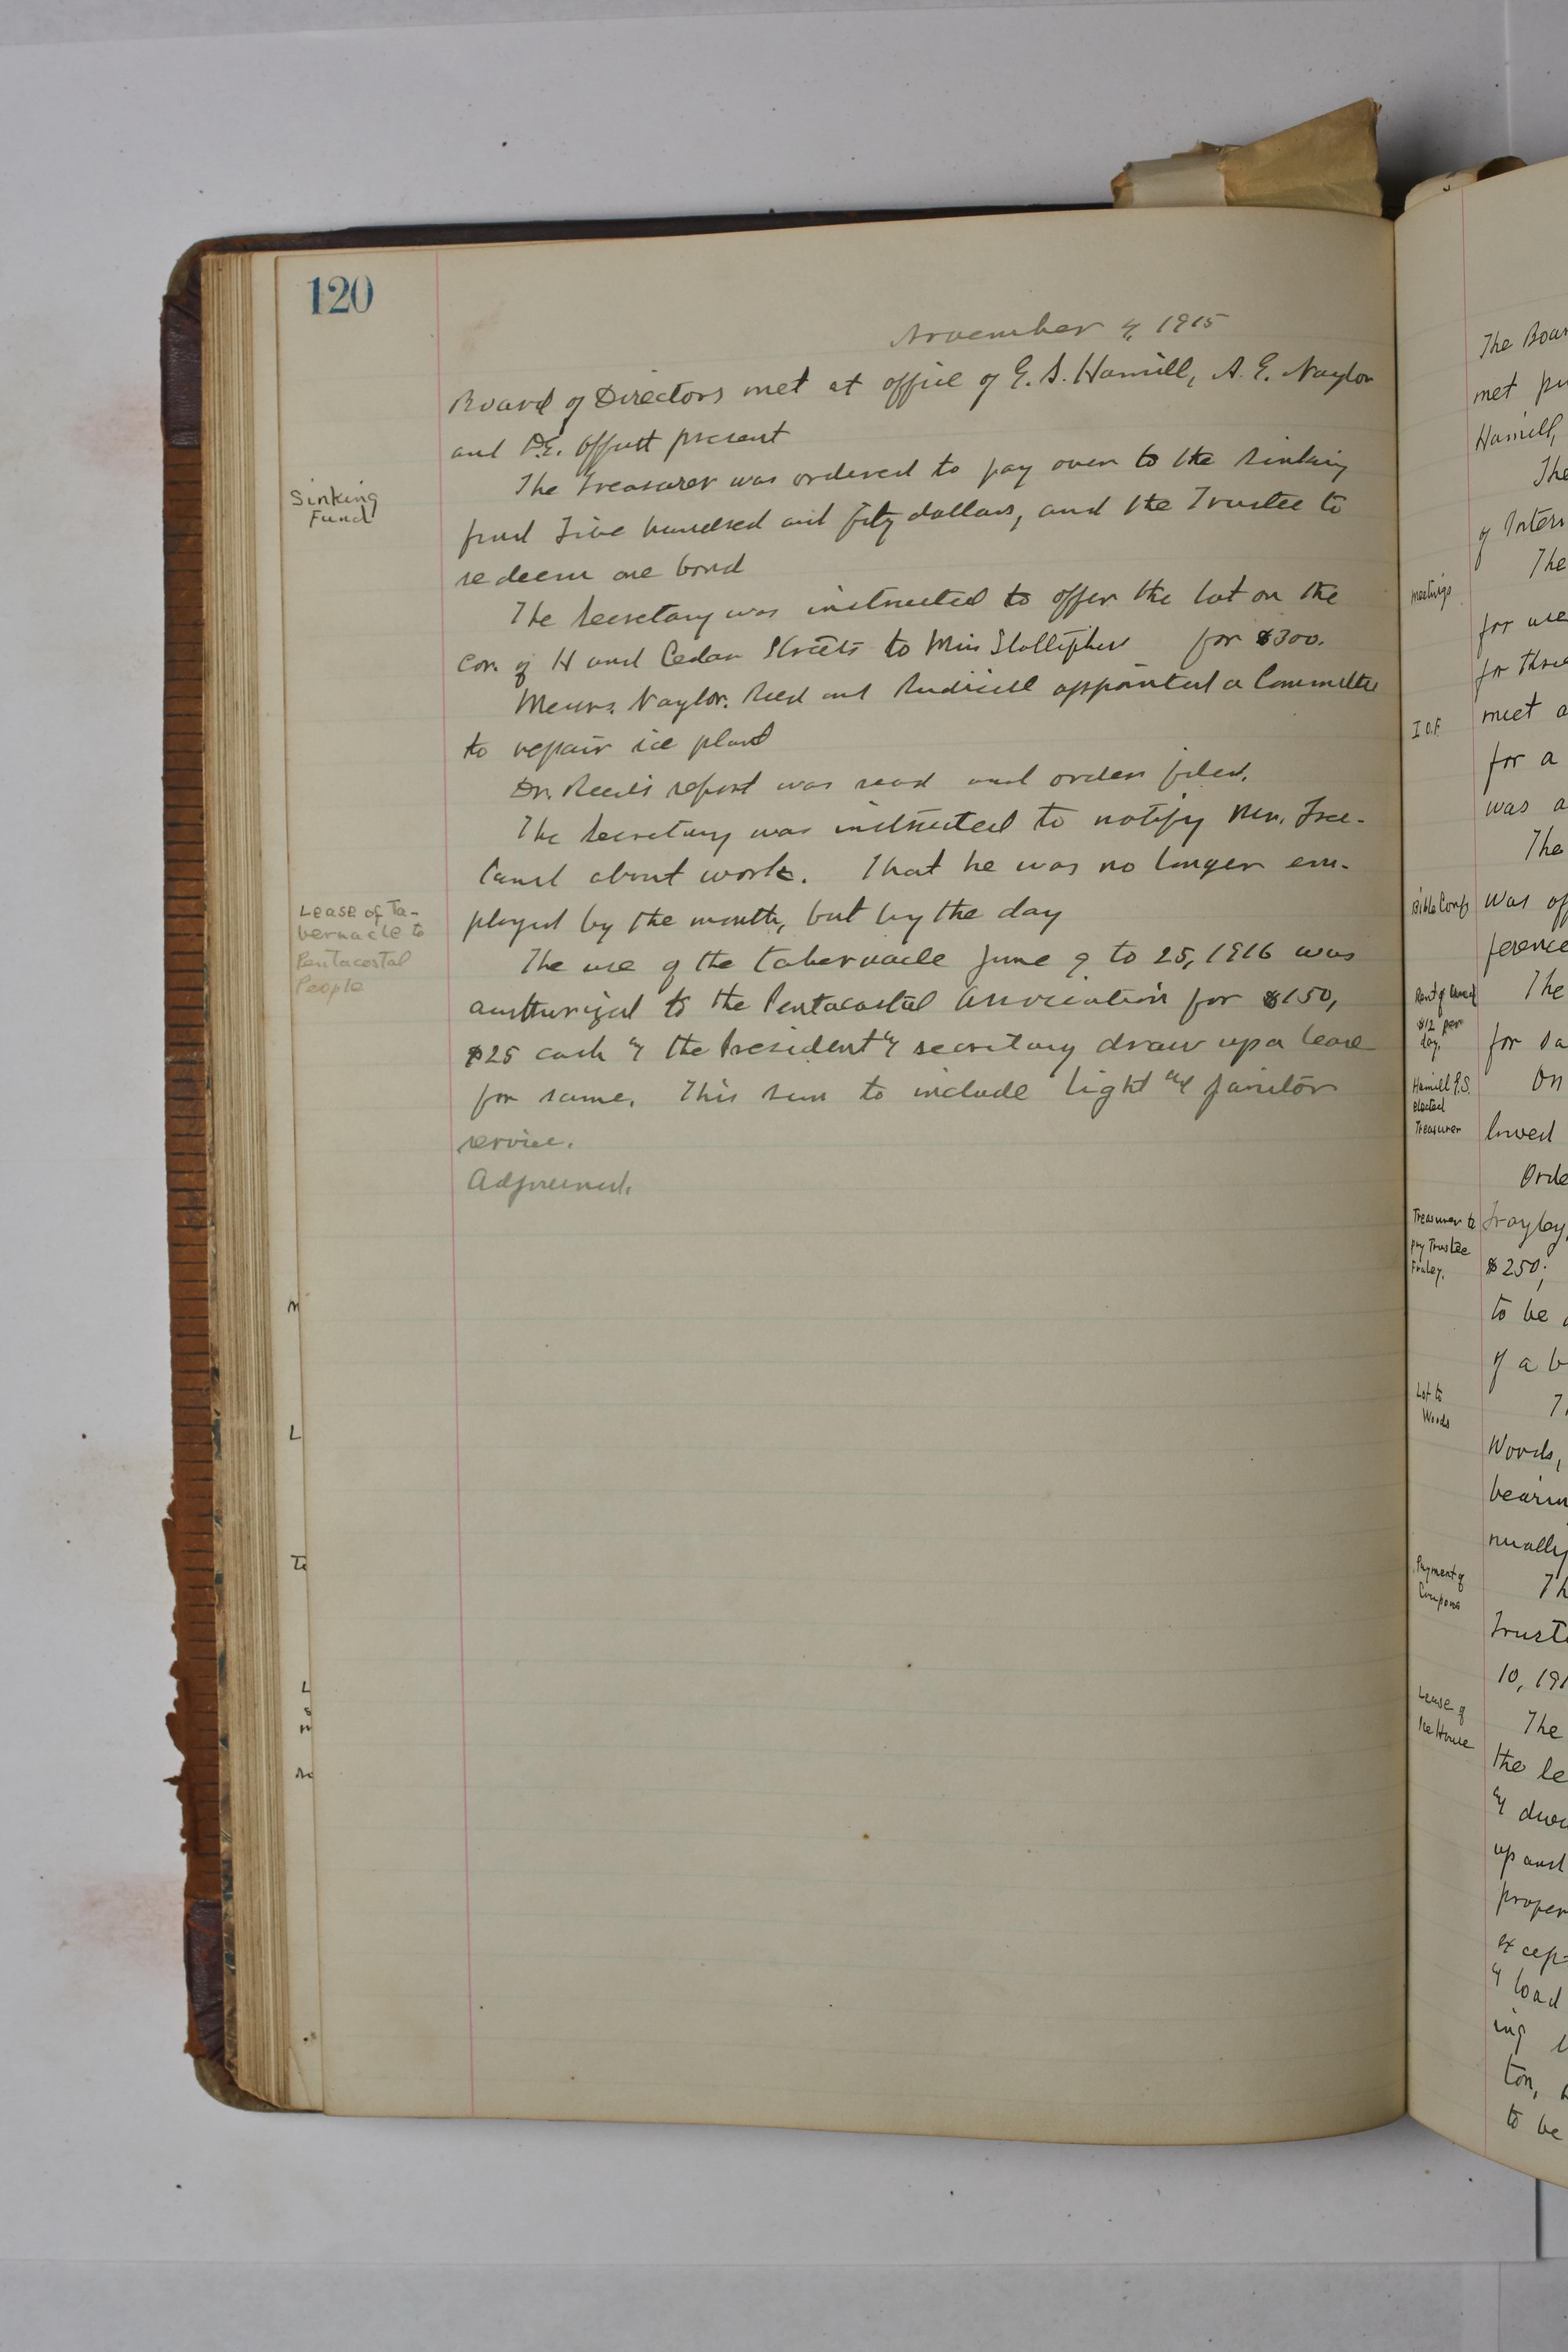 120
November 4, 1915
Board of Directors met at office of G. S. Hamill, A. E. Naylor
and D.E. Offutt present
Sinking
Fund
The Treasurer was ordered to pay over to the sinking
fund Five hundred and fifty dollars, and the Trustee to
redeem one bond
The Secretary was instructed to offer the lot on the
cor. of H and Cedar Streets to Miss for $300.
Messrs. Naylor, Reed and Rudisill appointed a Committee
to repair ice plant
Dr. Reed's report was read and orders filed.
The Secretary was instructed to notify Mr. Free-
land about work. That he was no longer em-
ployed by the month, but by the day
Lease of Ta-
bernacle to
Pentacostal
People
The use of the tabernacle June 9 to 25, 1916 was
authorized to the Pentacostal Association for $150,
$25 cash & the President & secretary draw up a lease
for same. This sum to include light & janitor
service.
Adjourned.
The Boar
met pu
Hamill,
The
of Inters
meetings
The
for use
for thre
I O.F.
meet a
for a
was a
The
Bible Conf
was of
ference
Rent of
$12 per
day.
The
for sa
Hamill G.S.
elected
Treasurer
On
lowed
Orde
Treasurer to
pay Trustee
Fraley.
Frayley,
$250;
to be
of a b
Lot to
Woods
Woods,
bearin
nually
Payment of
Coupons
Th
Truste
10, 191
Lease of
Ice House
The
the le
up and
proper
excep
& load
ing
ton,
to be